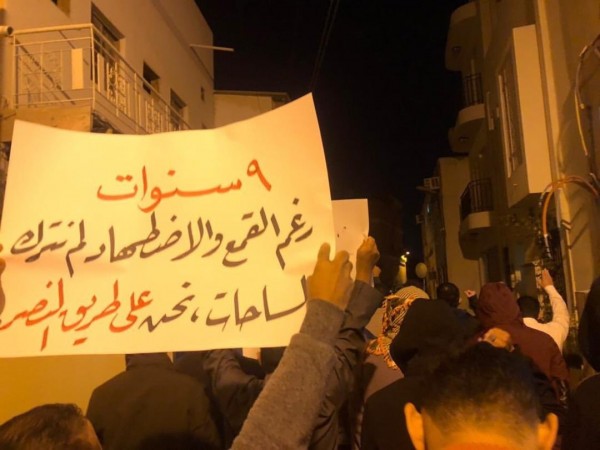 ٩ سنوات
رغم القمع والاضطهاد لم نترك
الساحات، نحن على طريق النصر